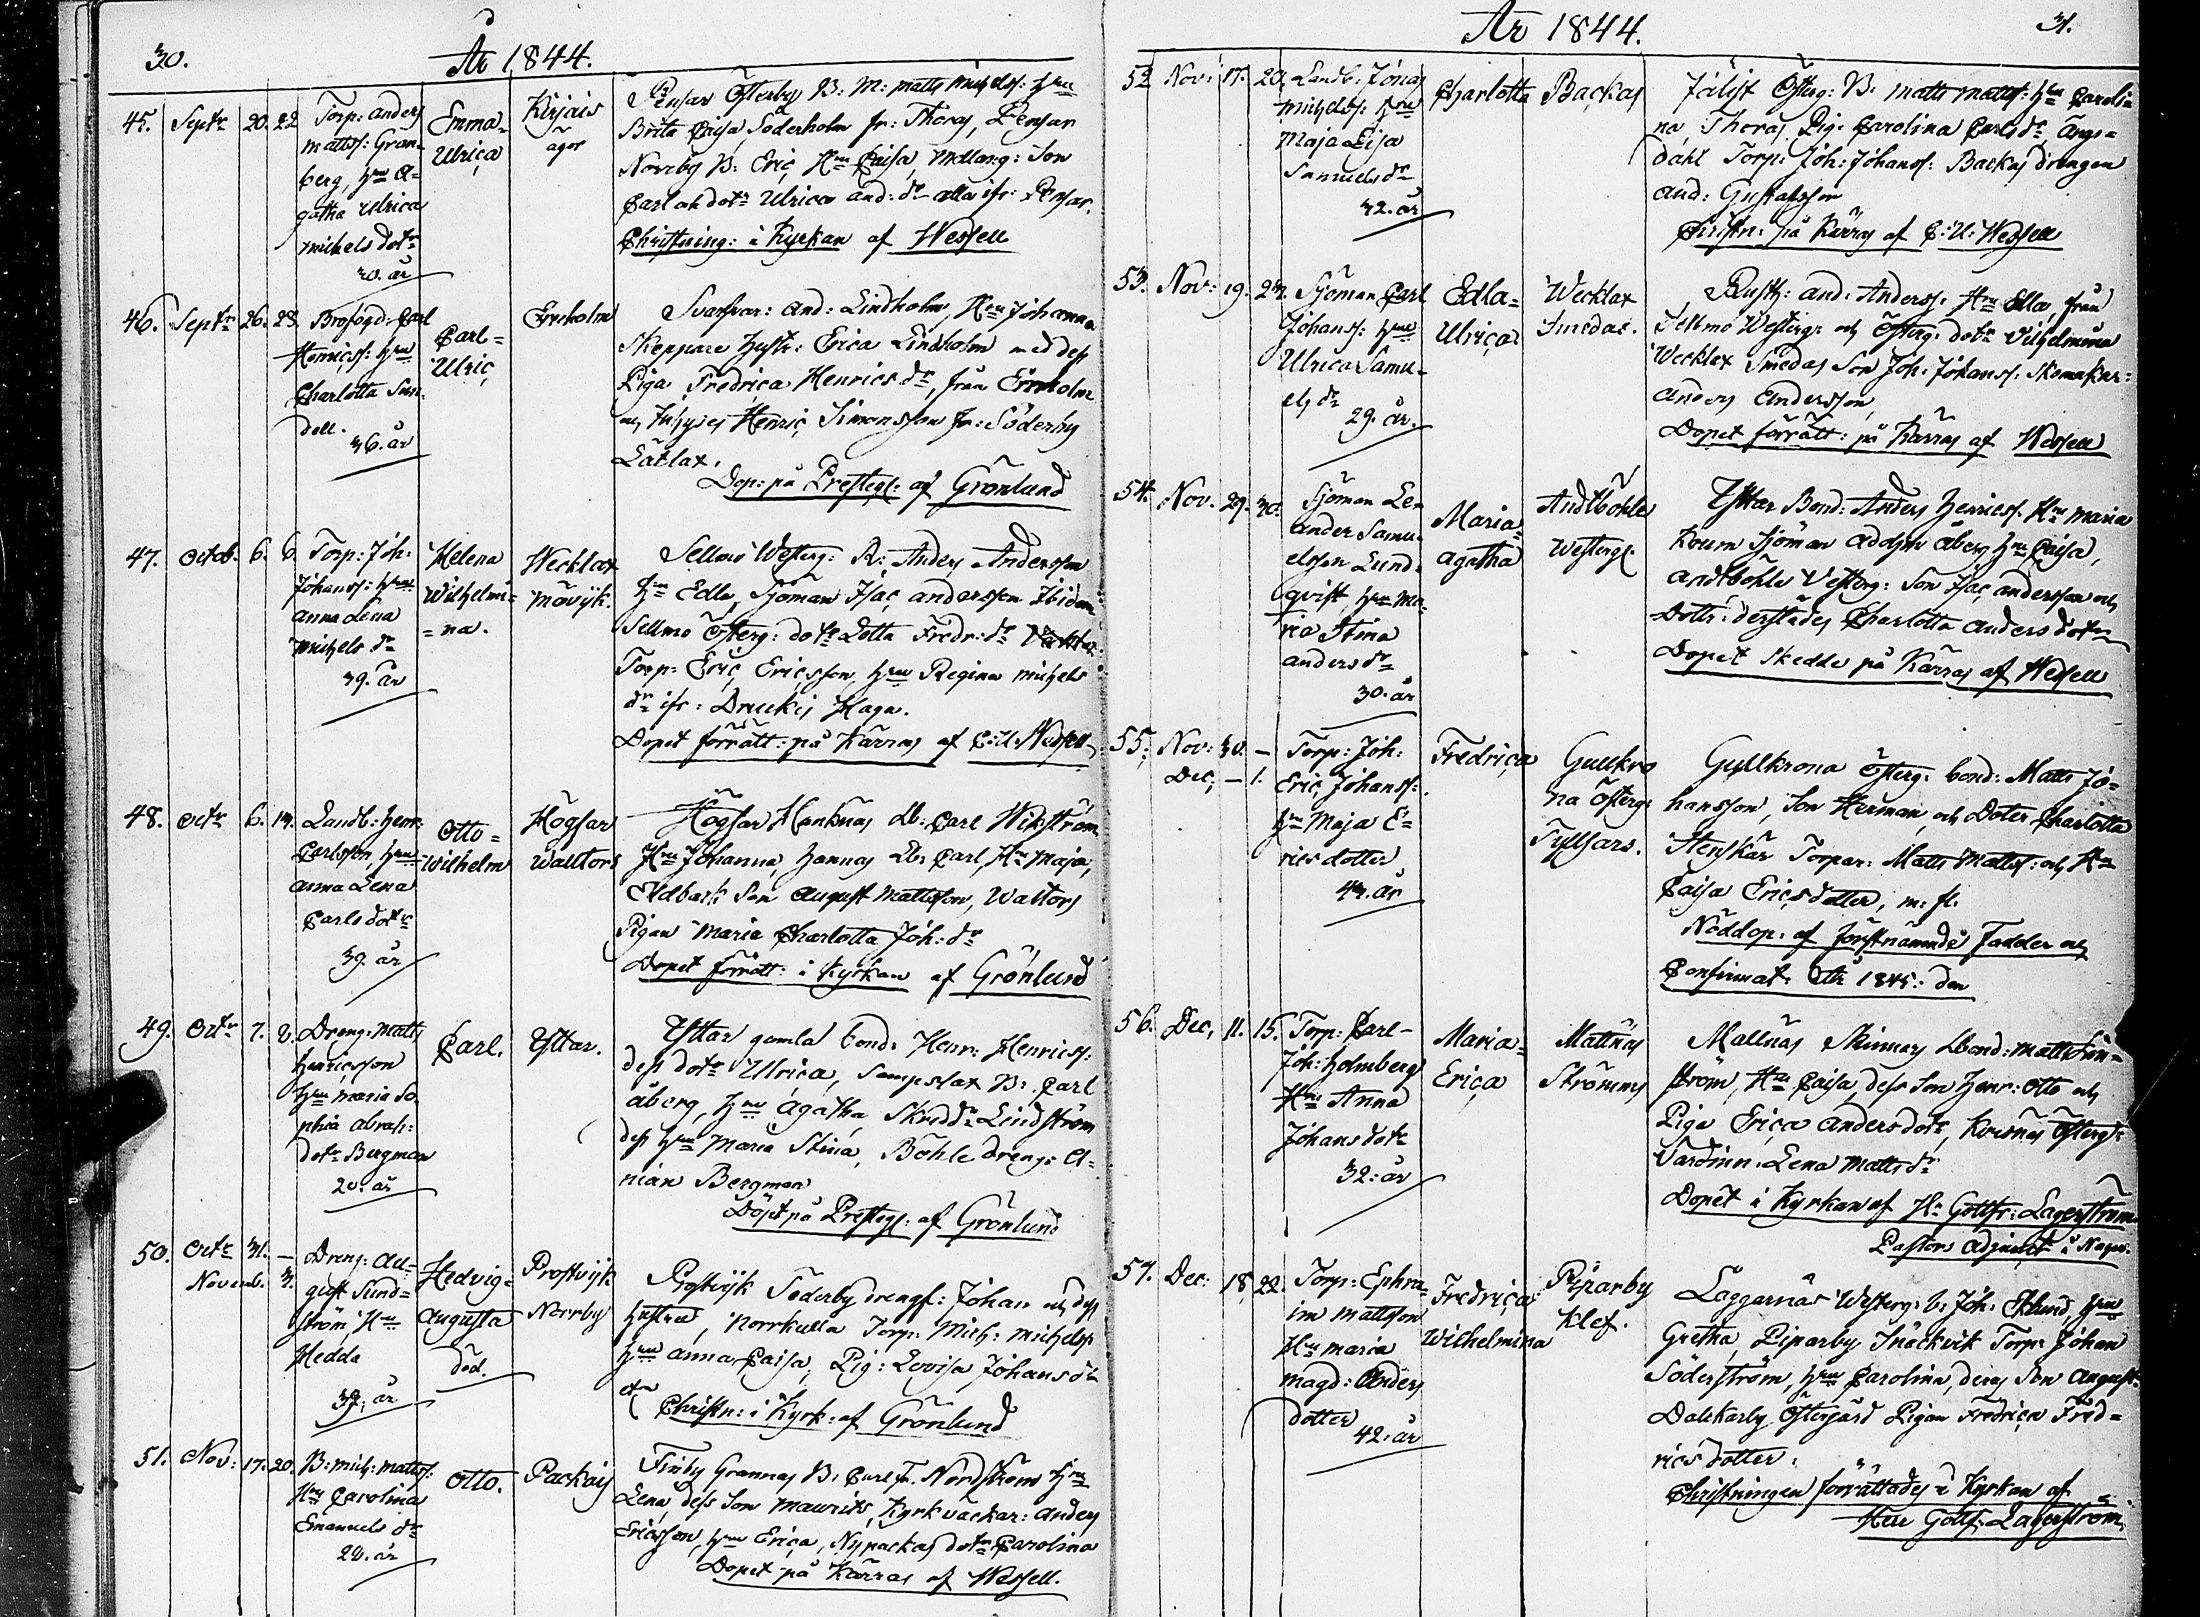 30.
År 1844.
45. Septr 20. 22
Torp: Anders
Matts: Gran-
berg, Hru A-
gatha Ulrica
Michels dotr
30. år
Emma-
Ulrica
Kirjais
ågor
Pensar Österby B: M: Matts Michels: Hru
Brita Caisa Söderholm fr: Thoras, Pensar
Norrby B: Eric Hru Caisa, Mellang: Son
Carl och dotr Ulrica And: dr alla ifr: Pensar.
Christning: i Kyrkan af Wessell
46. Septr 26. 28.
Brofogd: Carl
Henrics: Hru
Charlotta Sun-
dell.
36. år
Carl-
Ulric
Ernholm
Svarfvar: And: Lindholm, Hru Johanna
Skeppare Hustr: Erica Lindholm med dess
Piga Fredrica Henrics dr, från Ernholm
Henric Simonsson fr: Söderby
Lätlax.
Dop: på Presteg: af Grönlund
47. Octob: 6. 6.
Torp: Joh:
Johanss: Hru
Anna Lena
Michels dr
39. år
Helena
Wilhelmi-
=na.
Wecklax
Movijk.
Sellmo Westerg: R: Anders Andersson
Hru Edla, Sjöman Isac Andersson Ibidem
Sellmo Österg: dotr Lotta Fredr: dr
Torp: Eric Ericsson, Hru Regina Michels
dr ifr: Druckis Haga.
Dopet förrätt: på Kärras af C: U: Wessell
48. Octr 6. 13.
Landb: Henr:
Carlsson, Hru
Anna Lena
Carls dotr
39. år
Otto-
Wilhelm
Högsar
Walltors
Högsar Hanknäs Lb: Carl Wikström
Hru Johanna, Hannas Lb: Carl, Hru Maja,
Eldback Son August Mattsson, Waltors
Pigan Maria Charlotta Joh: dr
Dopet förrätt: i Kyrkan af Grönlund
49. Octr 7. 8.
Dreng: Matts
Henricsson
Hru Maria So
phia Abrah:
dotr Bergman
20. år
Carl.
Yttar.
Yttar gamla bond: Henr: Henrics:
dess dotr Ulrica, Sampslax B: Carl
Åberg, Hru Agatha Skreddr Lindström
dess Hru Maria Stina, Böhle dreng: A-
nian Bergman
Döpt på Presteg: af Grönlund
50. Octr 31. –
Novemb. 3.
Dreng: Au-
gust Sund-
ström, Hru
Hedda
37. år
Hedvig-
Augusta
död.
Prostvijk
Norrby
Prostvijk Söderby drengf: Johan och dess
Hustru, Norrkulla Torp: Mich: Michels:
Hru Anna Caisa, Pig: Lovisa Johans dr
Christn: i Kyrk: af Grönlund
51. Nov: 17. 20.
B: Mich: Matts:
Hru Carolina
Emanuels dr
28. år
Otto.
Packais
Finby Grannas B: Carl Fr. Nordström Hru
Lena, dess Son Maurits, Kyrkväckar: Anders
Ericsson, Hru Erica, Nypackas dotr Carolina
Dopet på Kärras af Wessell.
År 1844.
31.
52 Nov: 17. 20.
Landb: Jonas
Michels: Hru
Maja Lisa
Samuels dr
32. år
Charlotta
Backas
Jälist Österg: B: Matts Matts: Hru Caroli-
na, Thoras Pig: Carolina Carls dr Ängs-
dahl Torp: Joh: Johans: Backas drengen
And: Gustafsson
Christn: på Kärras af C: U: Wessell
53. Nov: 19. 24.
Sjöman Carl
Johans: Hru
Ulrica Samu-
els dr
29. år.
Edla-
Ulrica
Wecklax
Smedas.
Rusth: And: Anderss: Hru Edla, från
Sellmo Westerg: och Österg: dotr Vilhelmina
Wecklax Smedas Son Joh: Johans: Skomakar:
Anders Andersson
Dopet förrätt: på Kärras af Wessell
54. Nov. 29. 30.
Sjöman Le-
ander Samu-
elsson Lund-
qvist Hru Ma-
ria Stina
Anders dr
30. år
Maria-
Agatha
Andtböhle
Westerg:
Yttar Bond: Anders Henrics: Hru Maria
Kroum Sjöman Adolph Åberg Hru Caisa,
Andtböhle Vesterg: Son Isac Andersson och
Dottr: derstädes Charlotta Anders dotr
Dopet skedde på Kärras af Wessell
55. Nov: 30. –
Dec, – 1.
Torp: Joh:
Eric Johans:
Hru Maja E-
rics dotter
44. år
Fredrica
Gullkro
na Österg:
Gyllkrona Österg: bond: Matts Jo-
hansson, Son Herman, och Doter Charlotta
Stenskär Torpar: Matts Matts: och Hru
Caisa Erics dotter, m: fl:
Nöddop: af förstnämnde Fadder och
Confirmat: År 1845: den
56. Dec, 11. 15.
Torp: Carl-
Joh: Holmberg
Hru Anna
Johans dotr
32: år
Maria-
Erica
Mattnäs
Strömms
Mallnäs Skinnars Lbond: Matts Lin-
ström, Hru Caisa, dess Son Henr: Otto och
Piga Erica Anders dotr, Krusnas Österg:
Värdinn: Lena Matts dr
Dopet i Kyrkan af Hr Gottfr: Lagerström
Pastors Adjunct i Nagu.
57. Dec: 18. 22.
Torp: Ephra-
im Mattsson
Hru Maria
Magd: Anders
dotter
42. år
Fredrica
Wilhelmina
Piparby
Klef.
Laggarnäs Westerg: b: Joh: Eklund, Hru
Gretha, Piparby Snäckvik Torp: Johan
Söderström, Hru Carolina, deras Son August.
Dalkarby Östergård Pigan Fredrica Fred-
rics dotter.
Christningen förrättades i Kyrkan af
Herr Gottf: Lagerström